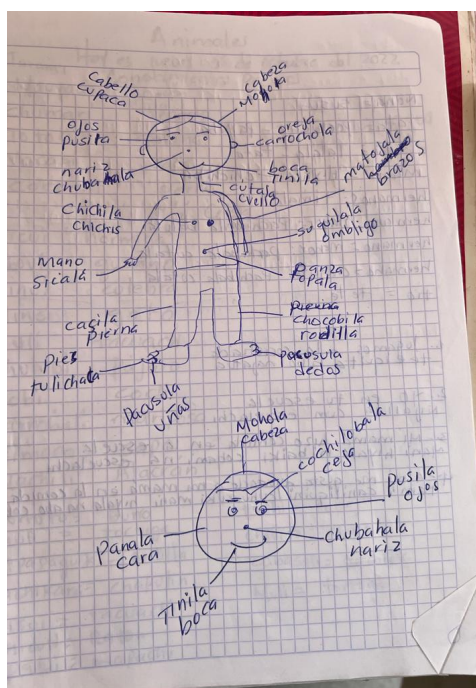 Animales
Cabello
cupaca
cabeza
Mohola
ojos
pusila
oreja
carrochola
nariz
chubahala
boca
Tinila
cutala
cvello
matojala
brazos
Chichila
chichis
suquilala
ombligo
Mano
sicala
panza
ropala
cacila
pierna
pierna
chocobila
rodilla
pies
tulichala
pacusula
dedos
pacusula
uñas
Mohola
cabeza
cochilobala
ceja
pusila
ojos
Panala
cara
chubahala
nariz
Tinila
boca